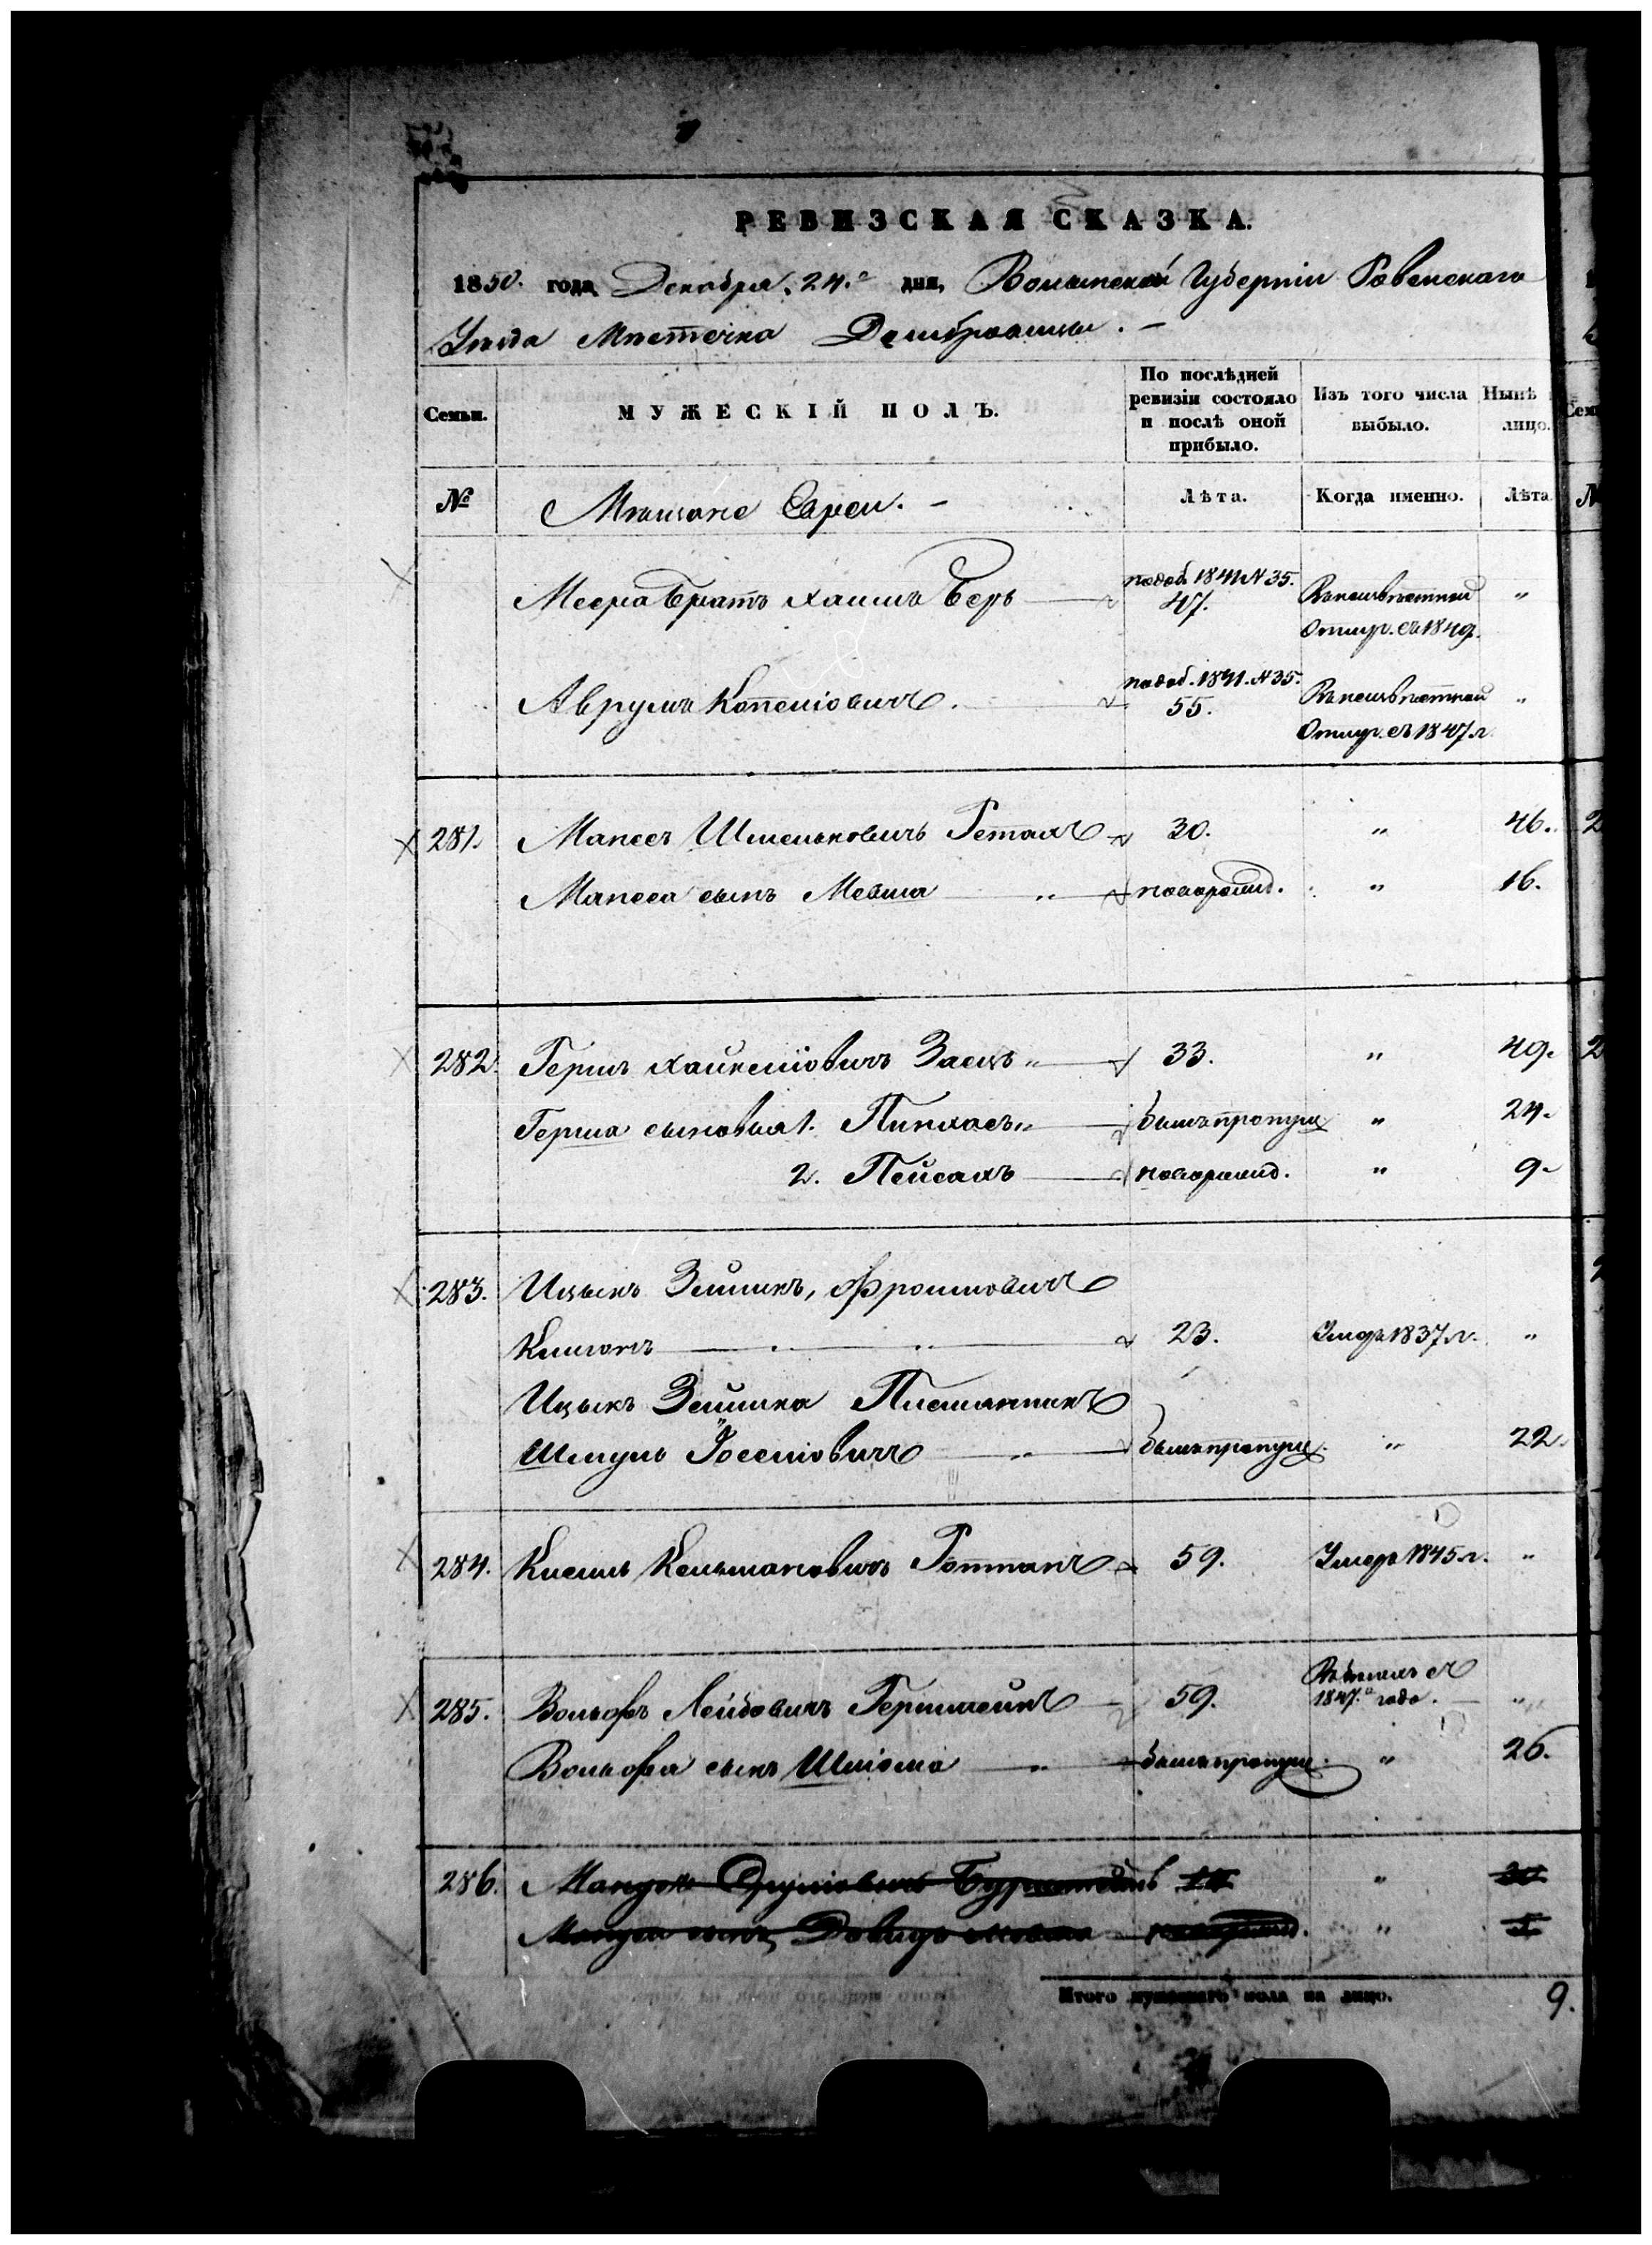 РЕВИЗСКАЯ СКАЗКА.
1850. года Декабря 24.го дня, Волынской Губерніи Ровенскаго
Уѣзда Мѣстечка Домбровицы. –
Семьи. МУЖЕСКІЙ ПОЛЪ. По послѣдней ревизіи состояло и послѣ оной прибыло. Изъ того числа выбыло. Нынѣ лицо.
№ Мѣщане Евреи. – Лѣта. Когда именно. Лѣта
Меера братъ Хаимъ Беръ 1841 N 35. 47. Въ неизвѣстной Отлуч. съ 1849. "
Аврумъ 1841. N 35. 55. Въ неизвѣстной Отлуч. съ 1847 г. "
281. Манесъ Шмельковичъ 30. " 46.
Манеса сынъ Мевша новорожд. " 16.
282. Гершъ Заецъ 33. " 49.
Герша сыновья 1. Пинхасъ былъ пропущ " 24.
2. Пейсахъ новорожд. " 9.
283. Ицыкъ Зейликъ, Фроимовичъ
23. Умеръ 1837 г. "
Ицыкъ Зейлика Племянникъ
Шмуль Іосевіовичъ былъ пропущ. " 22.
284. Кисиль Кельмановичъ 59. Умеръ 1845 г. "
285. Вольфъ Лейбовичъ 59. 1847.го года. "
Вольфа сынъ Шліома былъ пропущ. " 26.
286. Давидъ "
Итого мужескаго пола на лицо. 9.